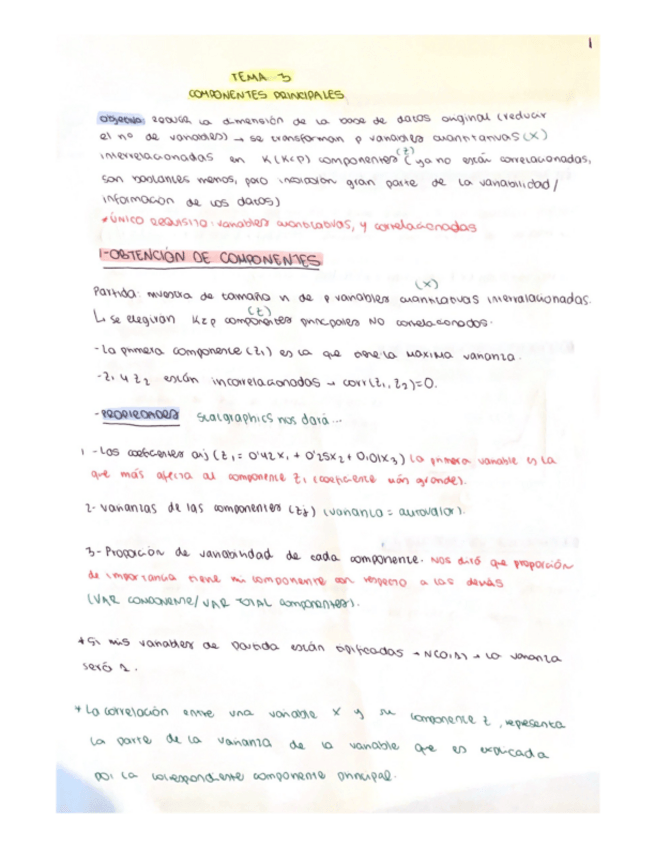 1
TEMA 3
COMPONENTES PRINCIPALES
Objetivo: reducir la dimensión de la base de datos original (reducir
el nº de variables) → se transforman p variables cuantitativas (X)
interrelacionadas en K(K<p) componentes (z) (ya no están correlacionadas,
son bastantes menos, pero incorporan gran parte de la variabilidad/
información de los datos)
*ÚNICO REQUISITO: variables cuantitativas, y correlacionadas
1-OBTENCIÓN DE COMPONENTES
Partida: muestra de tamaño n de p variables (X) cuantitativas interrelacionadas.
↳ se elegirán K≤p componentes (z) principales NO correlacionados.
-La primera componente (z₁) es la que tiene la máxima varianza.
-z₁ y z₂ están incorrelacionadas → corr(z₁, z₂)=0.
-PROPIEDADES Statgraphics nos dará...
1-Los coeficientes aij (z₁ = 0'42x₁ + 0'25x₂ + 0,01x₃) la primera variable es la
que más afecta al componente z₁ (coeficiente más grande).
2- varianzas de las componentes (zj) (varianza = autovalor).
3- Proporción de variabilidad de cada componente. Nos dirá que proporción
de importancia tiene mi componente con respecto a las demás
(VAR COMPONENTE/VAR TOTAL componentes).
*Si mis variables de partida están tipificadas → N(0,1) → la varianza
será 1.
* La correlación entre una variable X y su componente z, representa
la parte de la varianza de la variable que es explicada
por la correspondiente componente principal.